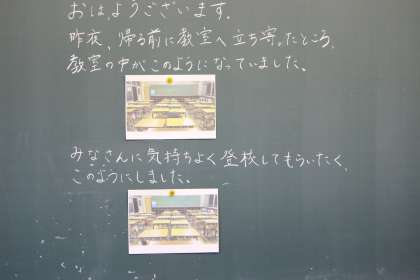 おはようございます。
昨夜、帰る前に教室へ立ち寄ったところ、
教室の中がこのようになっていました。
みなさんに気持ちよく登校してもらいたく、
このようにしました。